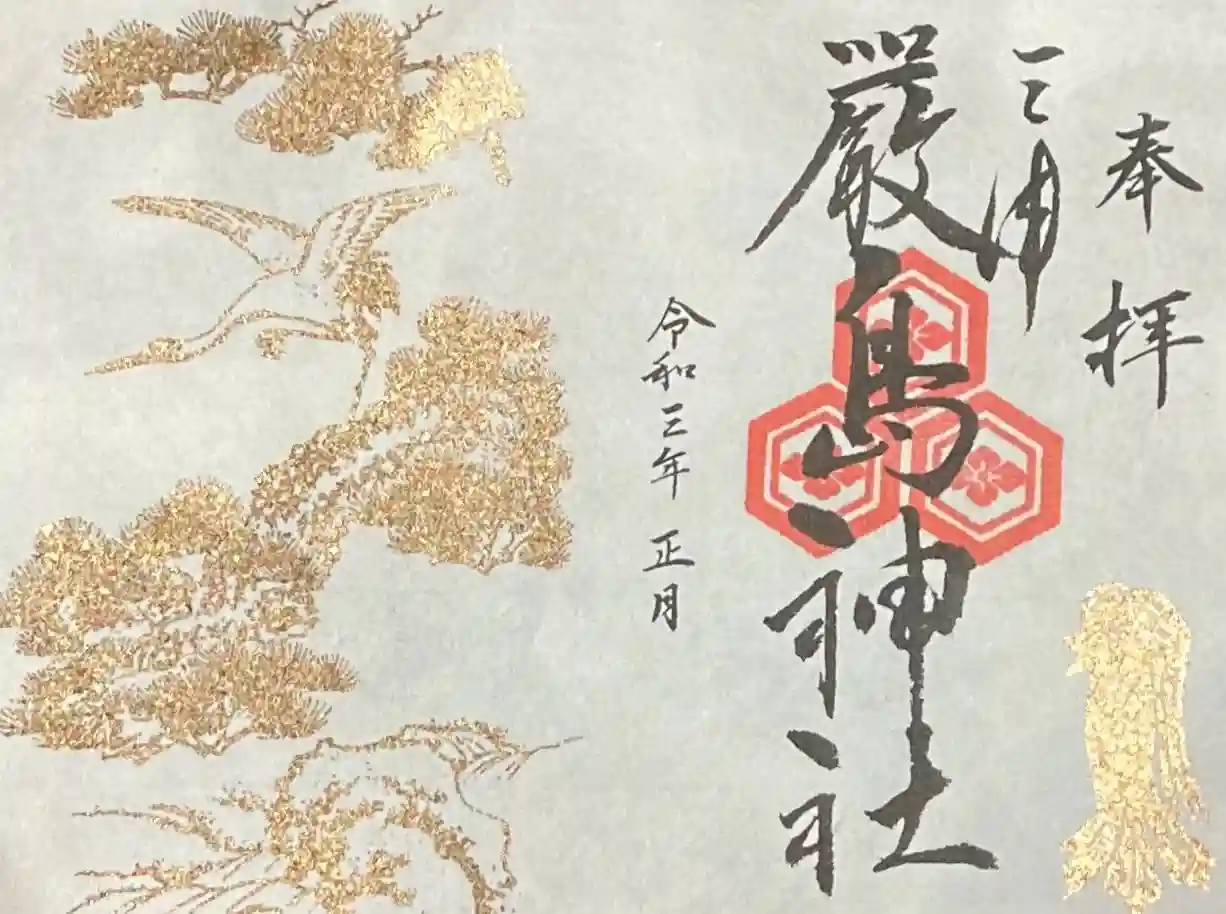 奉拝
三浦
厳島神社
令和三年 正月